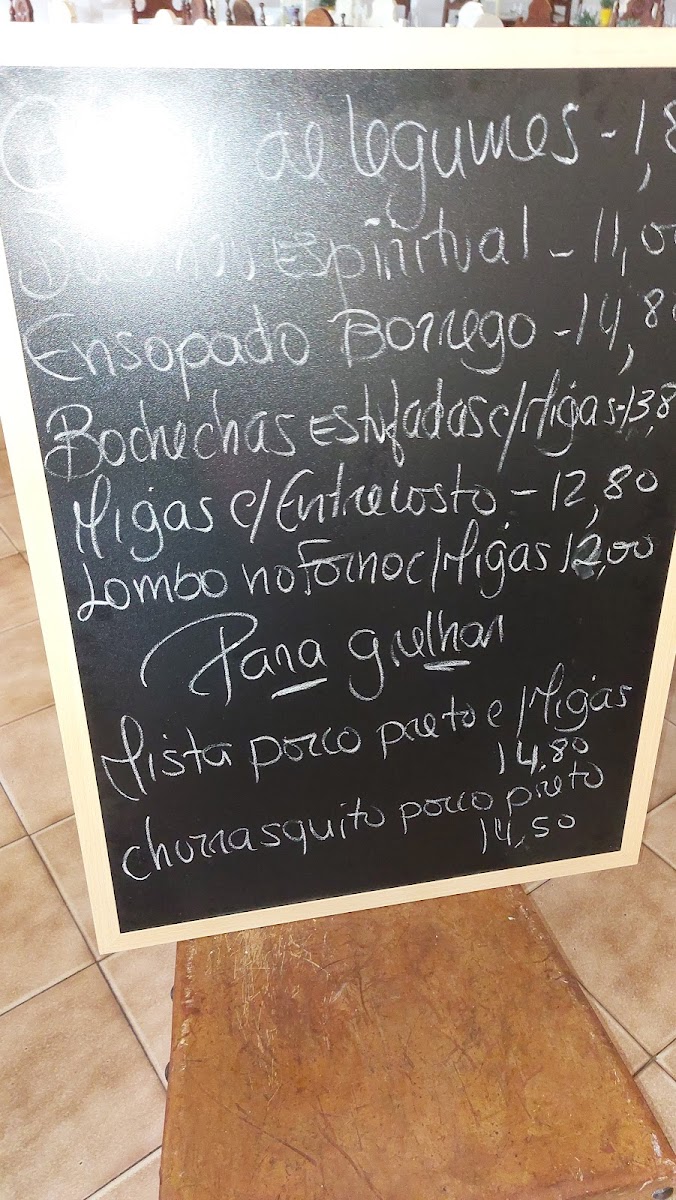 de legumes - 1,8
espiritual - 11,00
Ensopado Borrego - 14,80
Bochechas Estufadas c/Migas - 13,8
Migas c/Entrecosto - 12,80
Lombo no Forno c/Migas 12,00
Para grelhar
Mista porco preto c/Migas
14,80
churrasquito porco preto
14,50